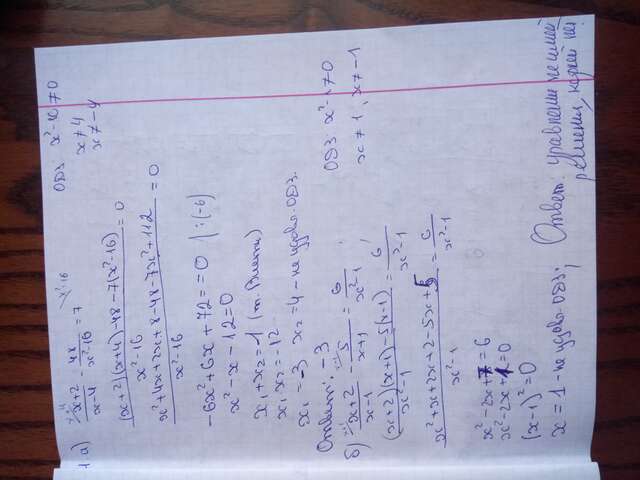 1. а) (x+2)/(x-4) - 48/(x²-16) = 7    ОДЗ: x²-16≠0
x≠4
x≠-4
((x+2)(x+4)-48-7(x²-16))/(x²-16) = 0
(x²+4x+2x+8-48-7x²+112)/(x²-16) = 0
-6x²+6x+72=0 |:(-6)
x²-x-12=0
x₁+x₂=1 (т. Виета)
x₁·x₂=-12
x₁=-3 x₂=4 - не удовл ОДЗ.
Ответ: -3
б) (x+2)/(x-1) - 5/(x+1) = 6/(x²-1);    ОДЗ: x²-1≠0
x≠1, x≠-1
((x+2)(x+1)-5(x-1))/(x²-1) = 6/(x²-1)
(x²+x+2x+2-5x+5)/(x²-1) = 6/(x²-1)
x²-2x+7=6
x²-2x+1=0
(x-1)²=0
x=1 - не удовл ОДЗ;    Ответ: уравнение не имеет
решения, корней нет.